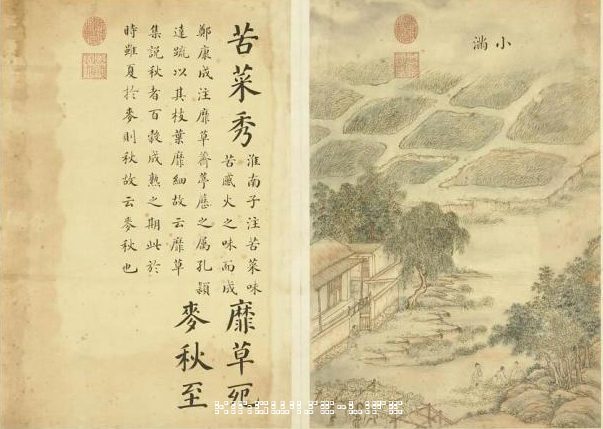 小滿
苦菜秀
淮南子注苦菜味
苦感火之味而成
靡草死
鄭康成注靡草薺葶藶之屬孔穎
達疏以其枝葉靡細故云靡草
麥秋至
集説秋者百穀成熟之期此於
時雖夏於麥則秋故云麥秋也